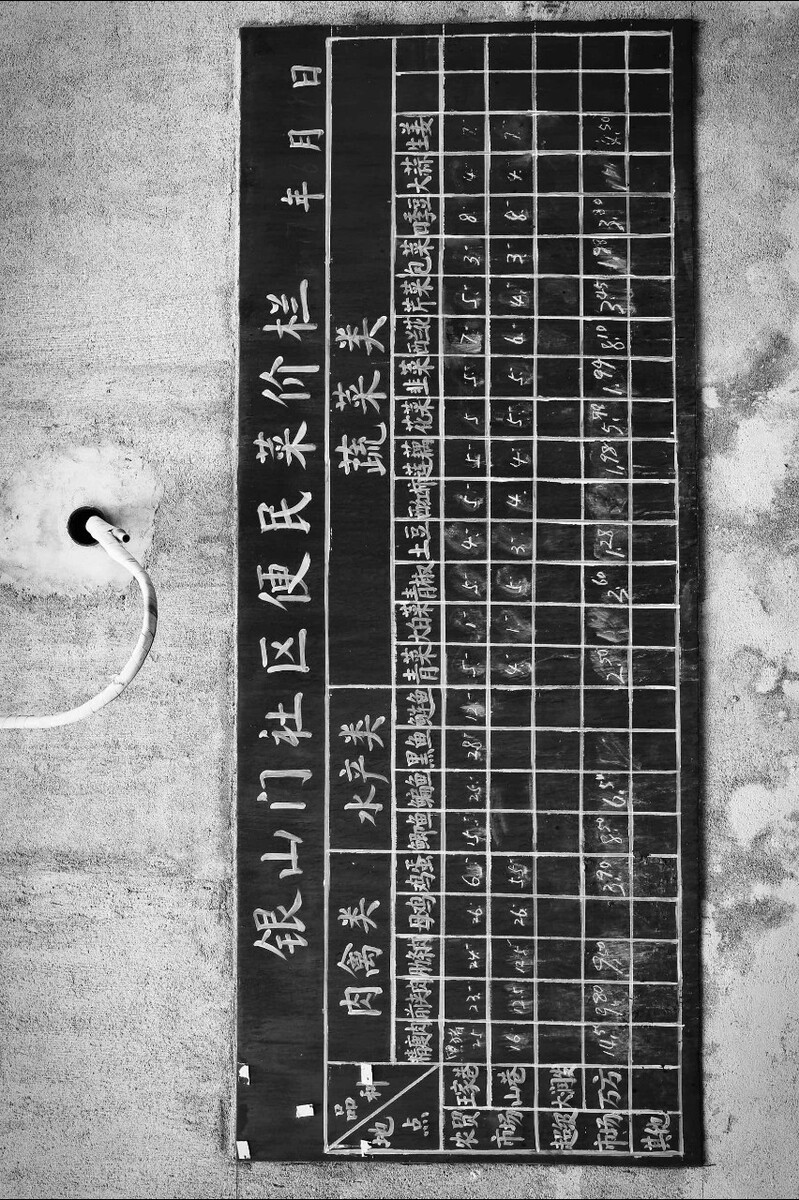 银山门社区便民菜价栏 年 月 日
品种 地点 肉禽类 水产类 蔬菜类
精瘦肉 前夹肉 肋条肉 母鸡 鸡蛋 鲫鱼 鳊鱼 黑鱼 鲢鱼 青菜 大白菜 青椒 土豆 西红柿 莲藕 花菜 韭菜 西兰花 芹菜 包菜 四季豆 大蒜 生姜
农贸 王家巷 25 23- 24- 26- 6- 15- 26- 28- 12- 5- 1- 5- 4- 5- 5- 5 5- 7- 5- 3- 8- 4- 7-
市场 山巷 16 12.5 12.5 26- 5.5- 4- 1- 5- 3- 4 4- 5- 5- 6- 4- 3- 8- 7-
超级 大润发
市场 万方 14.5 9.80 9.20 3.90 8.50 6.5 2.50 3.60 1.28 1.98 5.98 1.99 8.10 3.45 1.98 3.80 4.50
其他